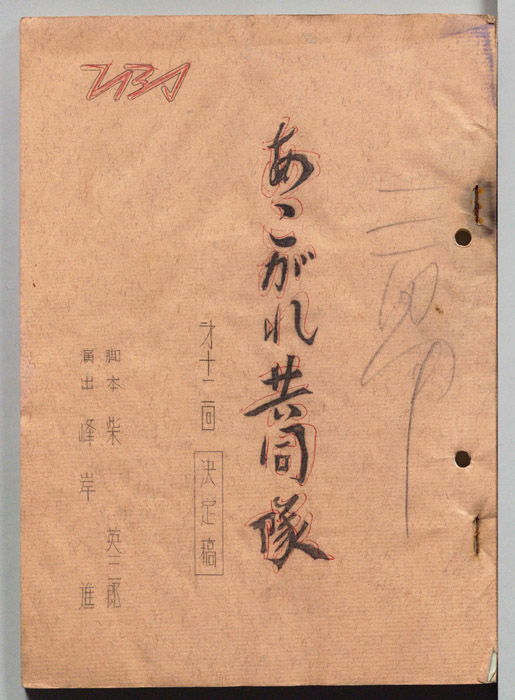 あこがれ共同隊
才十二回 決定稿
脚本 柴 英三郎
演出 峰岸 進